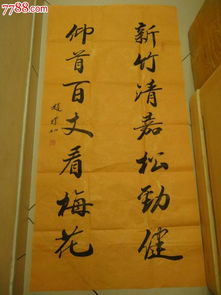 7788.com
新竹清嘉松劲健
仰首百丈看梅花